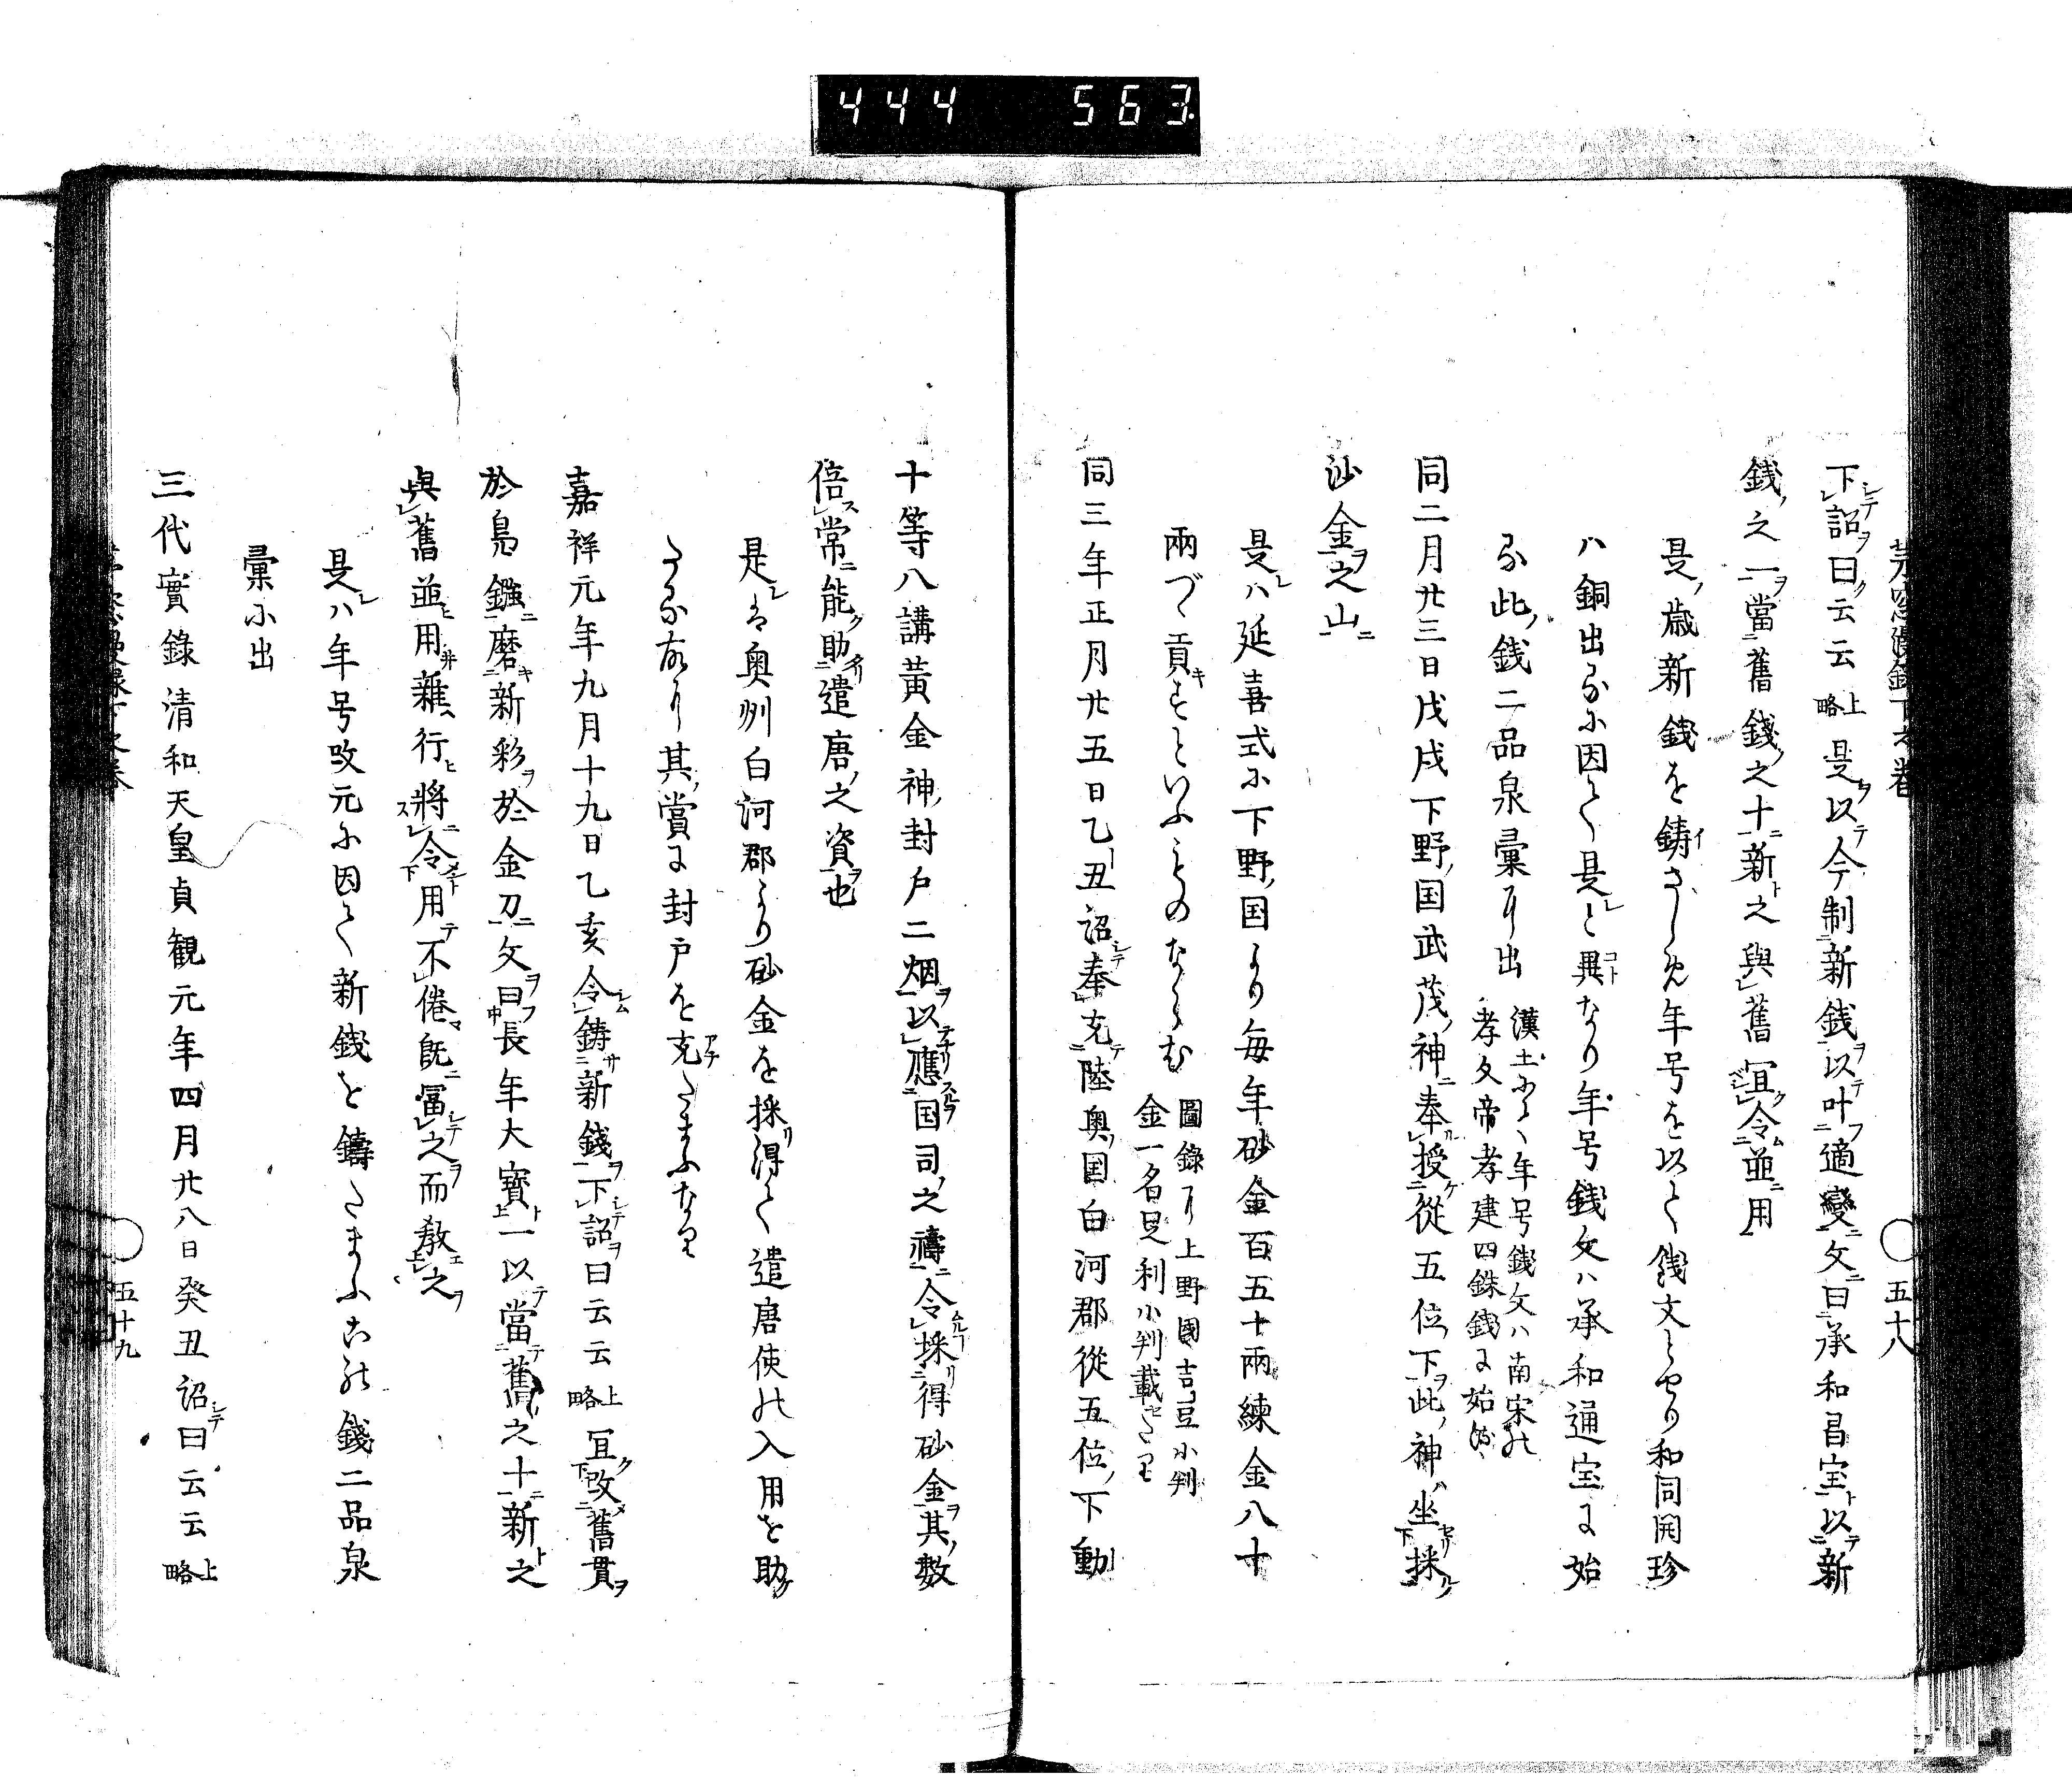 444 563
下詔曰云云上略是以今制新銭以叶適變文曰承和昌宝以新
銭之一當舊銭之十新之與舊冝令並用
是歳新銭を鋳さしめ年号を以て銭文とせり和同開珍
ハ銅出るに因て是と異なり年号銭文ハ承和通宝に始
る此銭二品泉彙に出
漢土にては年号銭文ハ南宋の
孝文帝孝建四銖銭に始る
同二月廿三日戊戌下野国武茂神奉授從五位下此神坐採
沙金之山
是ハ延喜式に下野国より毎年砂金百五十兩練金八十
兩づゝ貢きといふものならむ
圖錄に上野國吉豆小判
金一名足利小判載せたり
同三年正月廿五日乙丑詔奉充陸奥国白河郡從五位下勳
五十八
十等八講黃金神封戸二烟以應国司之禱令採得砂金其數
倍常能助遣唐之資也
是は奥州白河郡より砂金を採得て遣唐使の入用を助
たる故に其賞に封戸を充たまふなり
嘉祥元年九月十九日乙亥令鋳新錢下詔曰云云上略冝改舊貫
於鳧鏹磨新彩於金刀文曰長年大寶一以當舊之十新之
與舊並用雜行將令用不倦既冨之而教之
是ハ年号改元に因て新銭を鑄たまふ此銭二品泉
彙に出
三代實錄清和天皇貞観元年四月廿八日癸丑詔曰云云上略
五十九